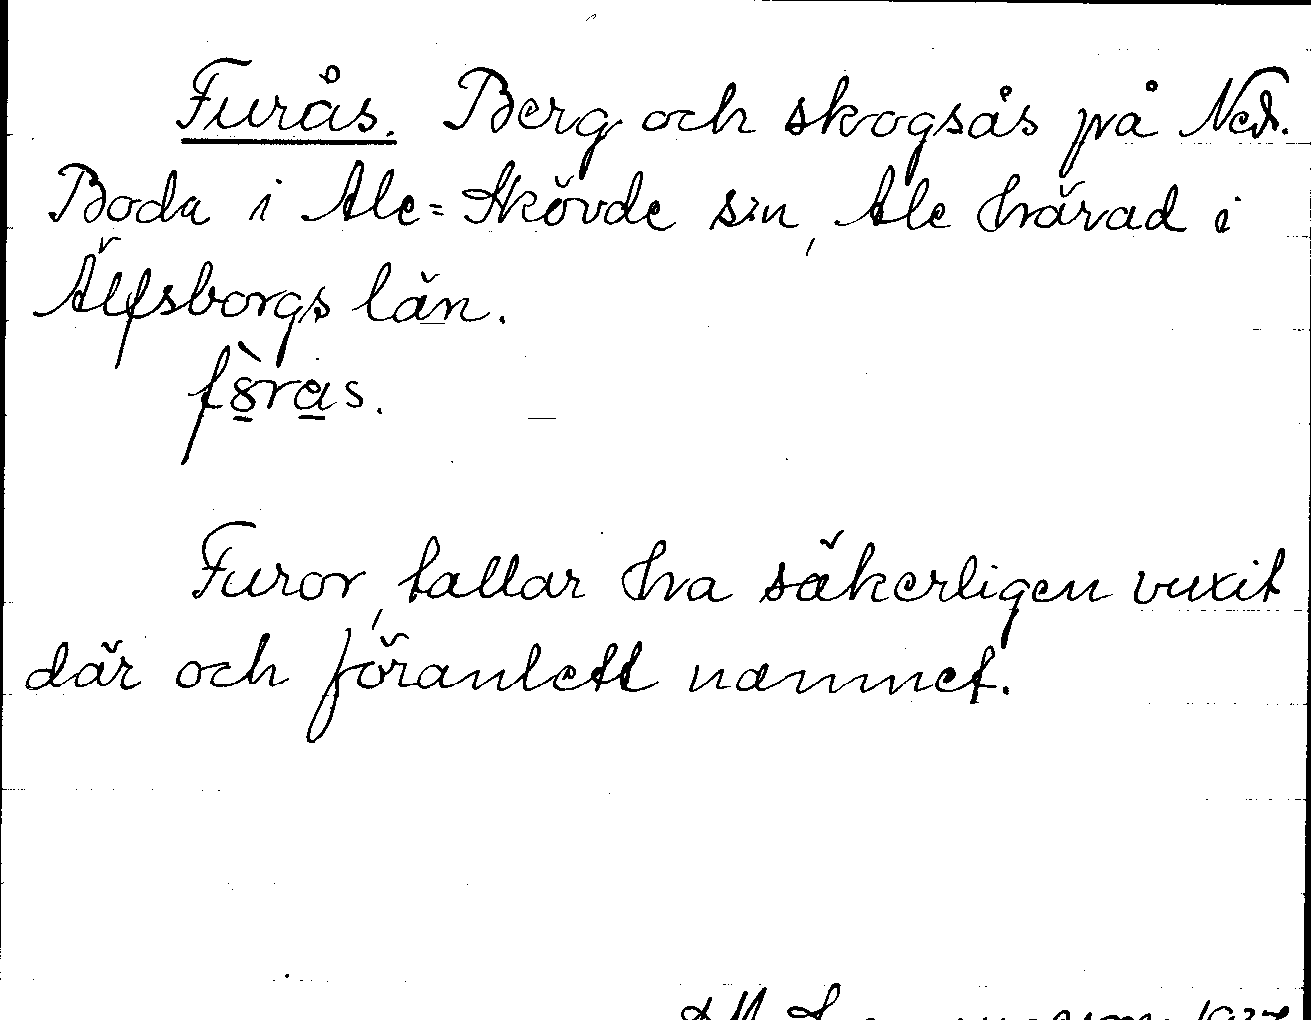 Furås. Berg och skogsås på Ned.
Boda i Ale=Skövde sın, Ale härad i
Älfsborgs län.
fòras.
Furor, tallar ha säkerligen vuxit
där och föranlett namnet.